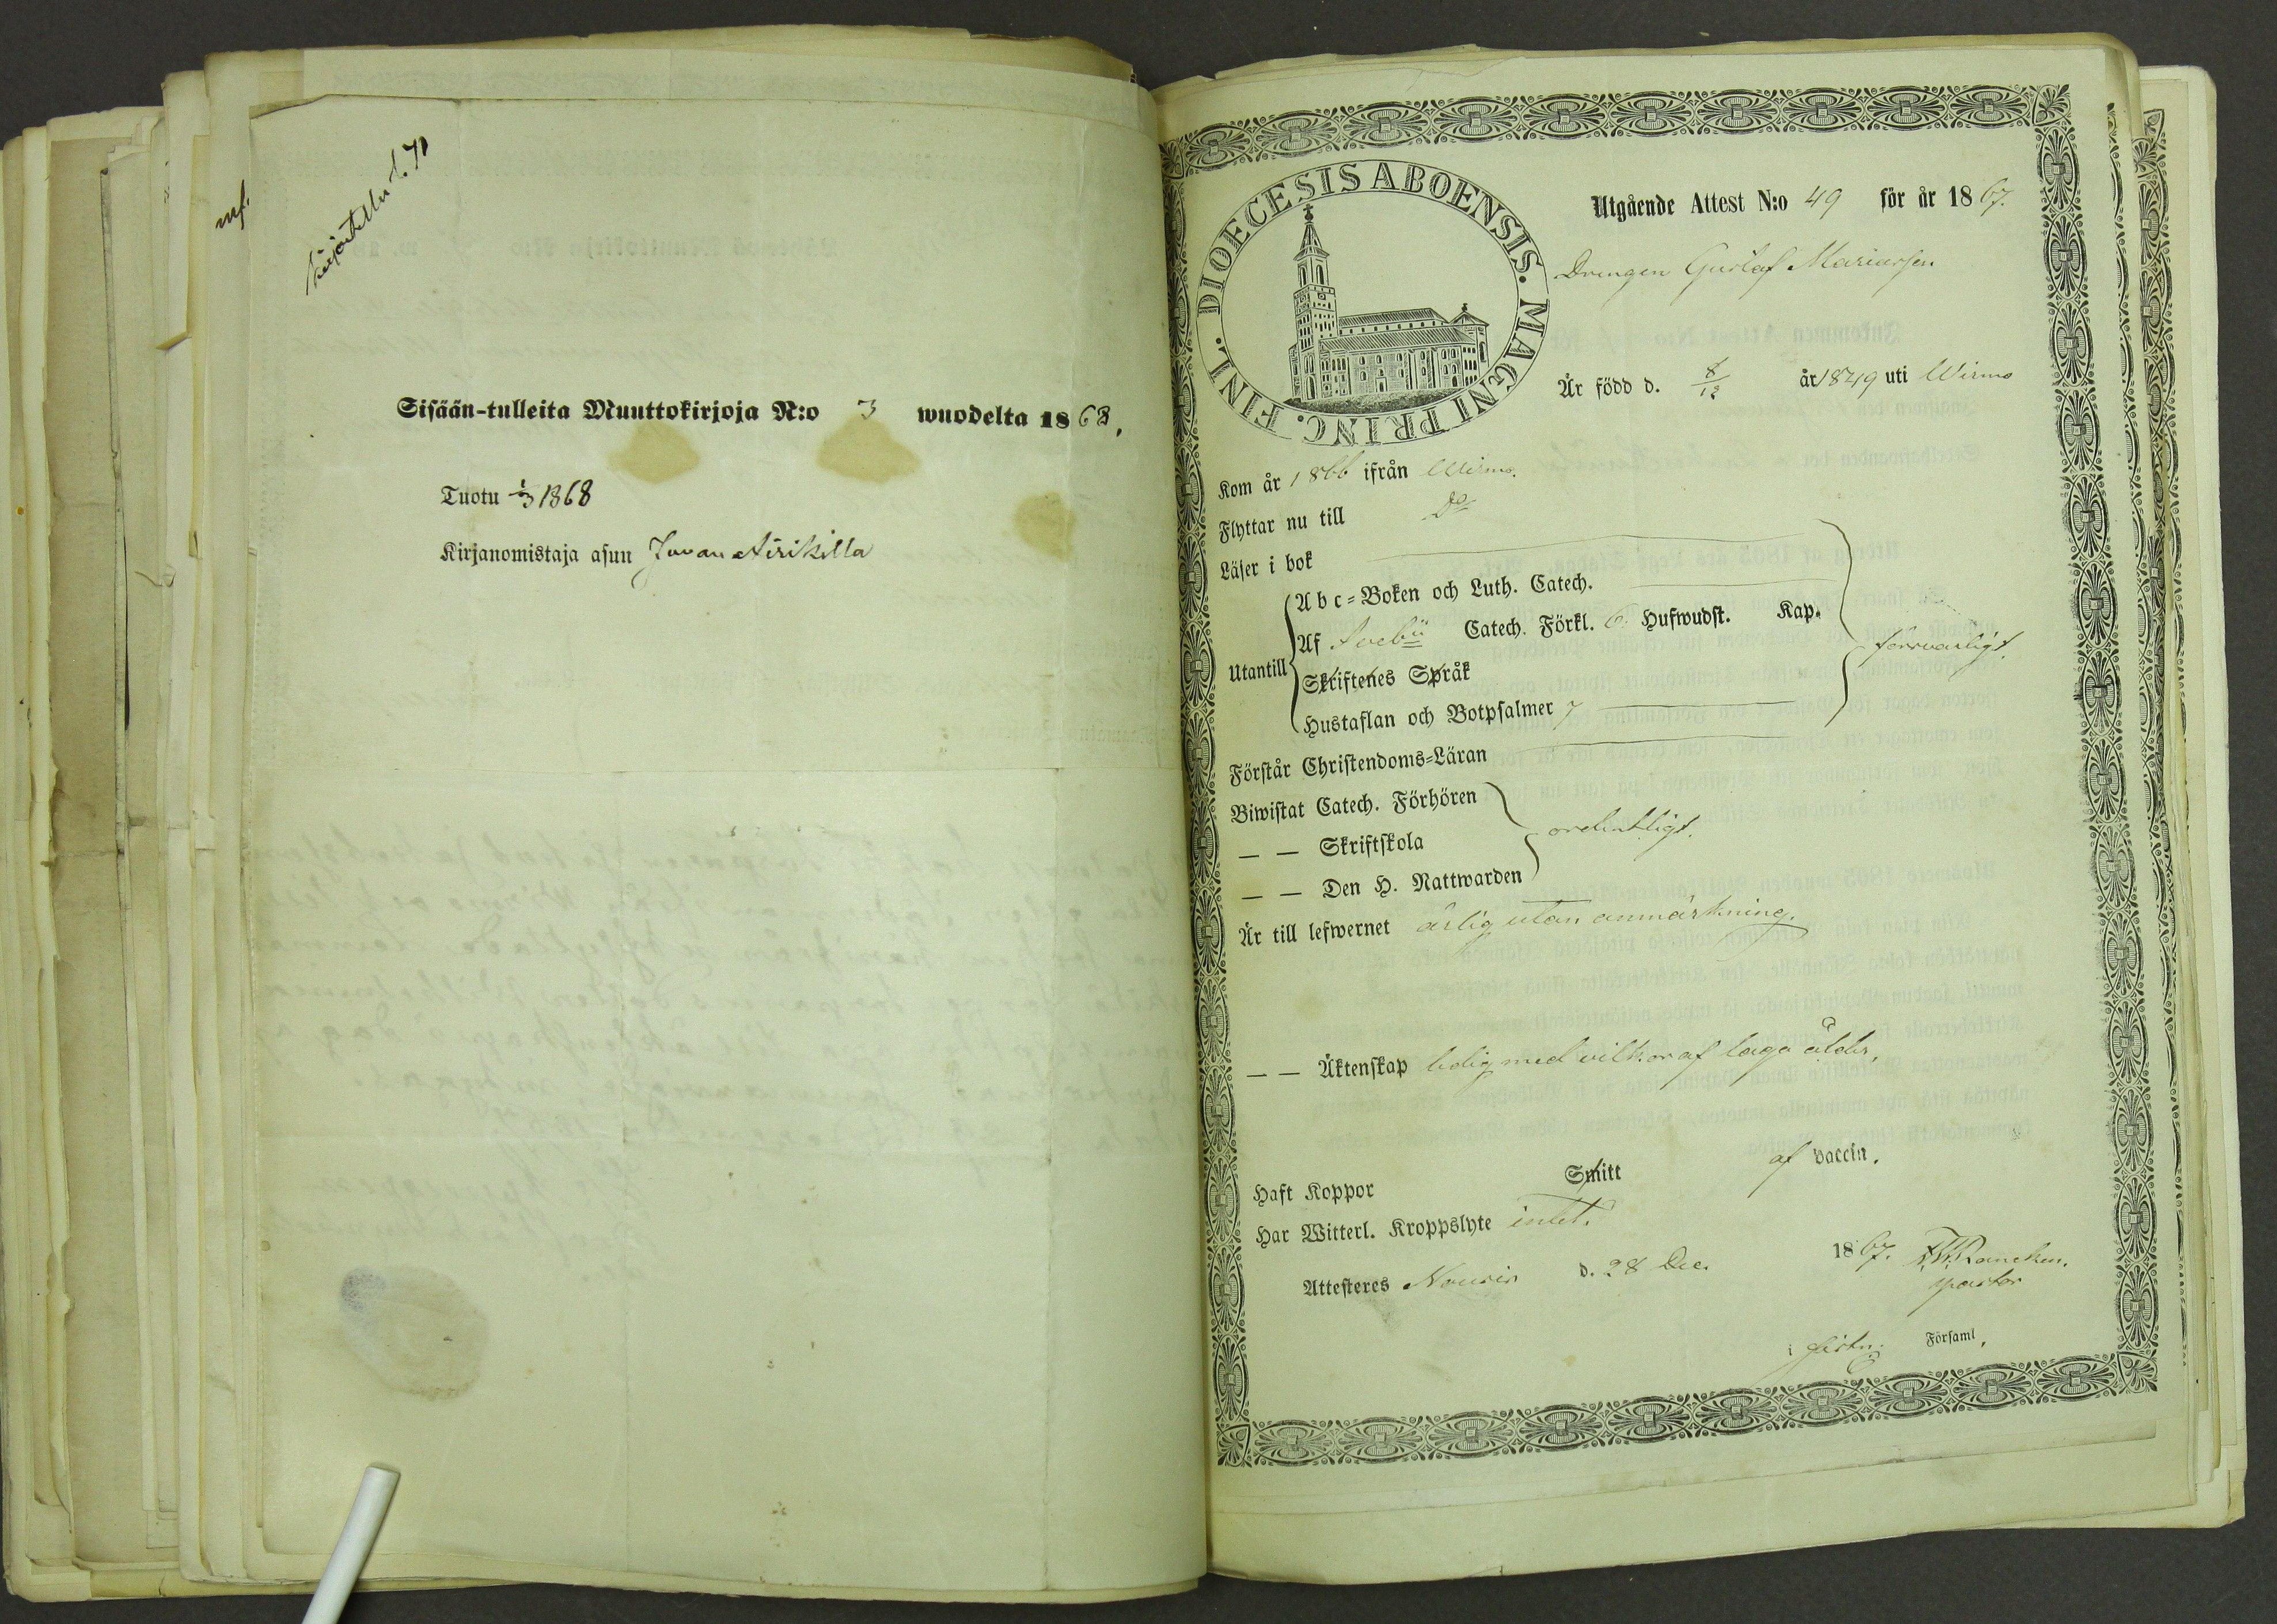 Sisään-tulleita Muuttokirjoja N:o 3 wuodelta 1868,
Tuotu 1/3 1868
Kirjanomistaja asuu Juvan Airikilla
DIOECESIS ABOENSIS. MAGNI PRINC. FINL.
Utgående Attest N:o 49 för år 1867.
Drengen Gustaf Mariasson
Är född d. 8/12 år 1849 uti Wirmo
Kom år 1866 ifrån Wirmo.
Flyttar nu till Do
Läser i bok
Utantill
A b c=Boken och Luth. Catech.
Af Svebii Catech. Förkl. 6. Hufwudst. Kap.
försvarligt.
Skriftenes Språk
Hustaflan och Botpsalmer 7
Förstår Christendoms=Läran
Biwistat Catech. Förhören
— — Skriftskola
ordentligt.
— — Den H. Nattwarden
Är till lefwernet ärlig utan anmärkning.
— — Äktenskap ledig med vilkor af laga ålder,
Haft Koppor Smitt af vaccin.
Har Witterl. Kroppslyte intet.
Attesteres Nousis d. 28 Dec. 1867.
pastor
i Församl.